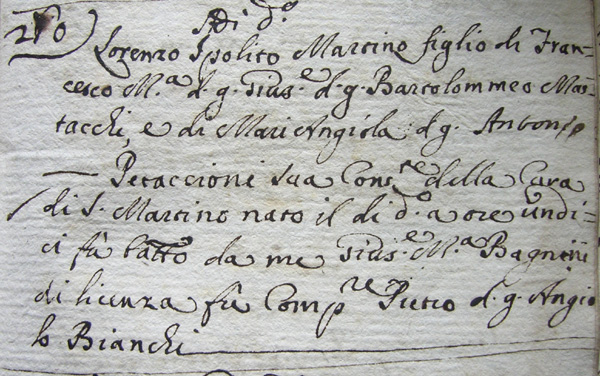 Adi d.o
210) Lorenzo Ipolito Martino figlio di Fran=
cesco M.a d. q. Gius.e d. q. Bartolommeo Mos=
tacchi, e di Mari Angiola d. q. Anton.o
Petaccioni sua Cons.te della Cura
di S. Martino nato il di d.o a ore undi=
ci fù batt.o da me Gius.e M.a Bagnini
di licenza fù Comp.re Puccio d. q. Angio
lo Bianchi